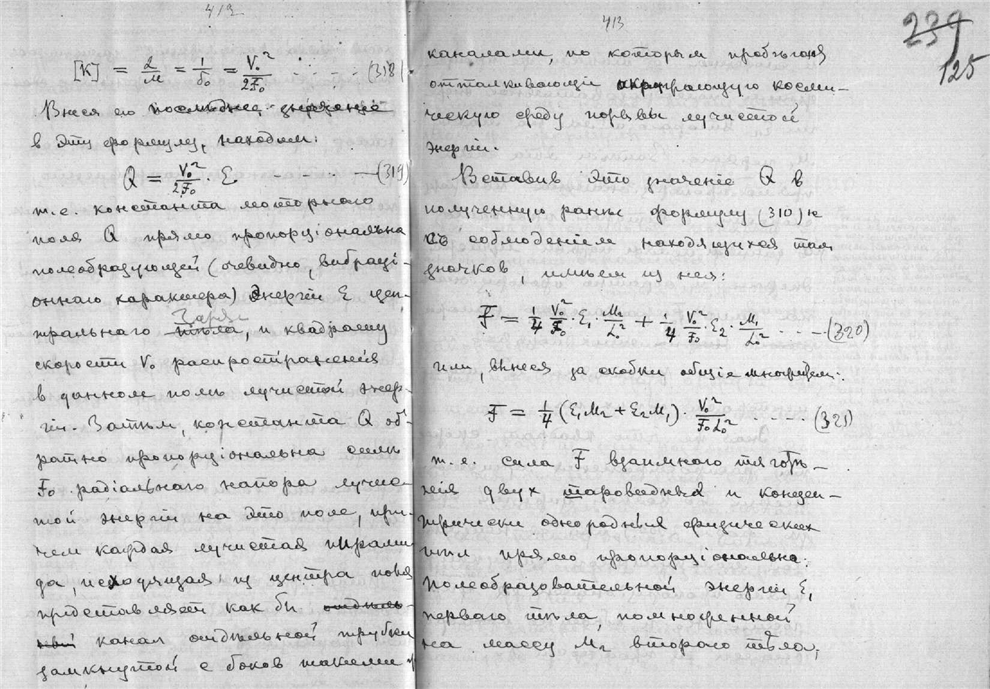 412
[K] = 2/M = 1/δ₀ = V₀²/2F₀ ..... (318)
Внеся его последнее значение
в эту формулу, находим:
Q = V₀²/2F₀ · Ɛ ..... (319)
т.е. константа моторного
поля Q прямо пропорціональна
полеобразующей (очевидно, вибраці-
оннаго характера) энергіи Ɛ цен-
тральнаго тѣла, и квадрату
скорости V₀ распространенія
в данном полѣ лучистой энер-
гіи. Затѣм, константа Q об-
ратно пропорціональна силѣ
F₀ радіальнаго напора лучис-
той энергіи на это поле, при-
чем каждая лучистая пирами-
да, исходящая из центра поля
представляет как бы отдѣль-
ный канал отдѣльной трубки
замкнутой с боков такими
413
239
125
каналами, по которым пробѣгают
отталкивающіе окружающую косми-
ческую среду порывы лучистой
энергіи.
Вставив это значеніе Q в
полученную ранѣе формулу (310) и
съ соблюденіем находящихся там
значков, имѣем из нея:
F = 1/4 V₀²/F₀ · Ɛ₁ · M₂/L₀² + 1/4 V₀²/F₀ · Ɛ₂ · M₁/L₀² ..... (320)
или, вынеся за скобки общіе множители:
F = 1/4 (Ɛ₁M₂ + Ɛ₂M₁) · V₀²/F₀L₀² ..... (321)
т.е. сила F взаимнаго тяготѣ-
нія двух шаровидных и концен-
трически однородных физических
тѣл прямо пропорціональна
полеобразовательной энергіи Ɛ₁
перваго тѣла, помноженной
на массу M₂ второго тѣла,